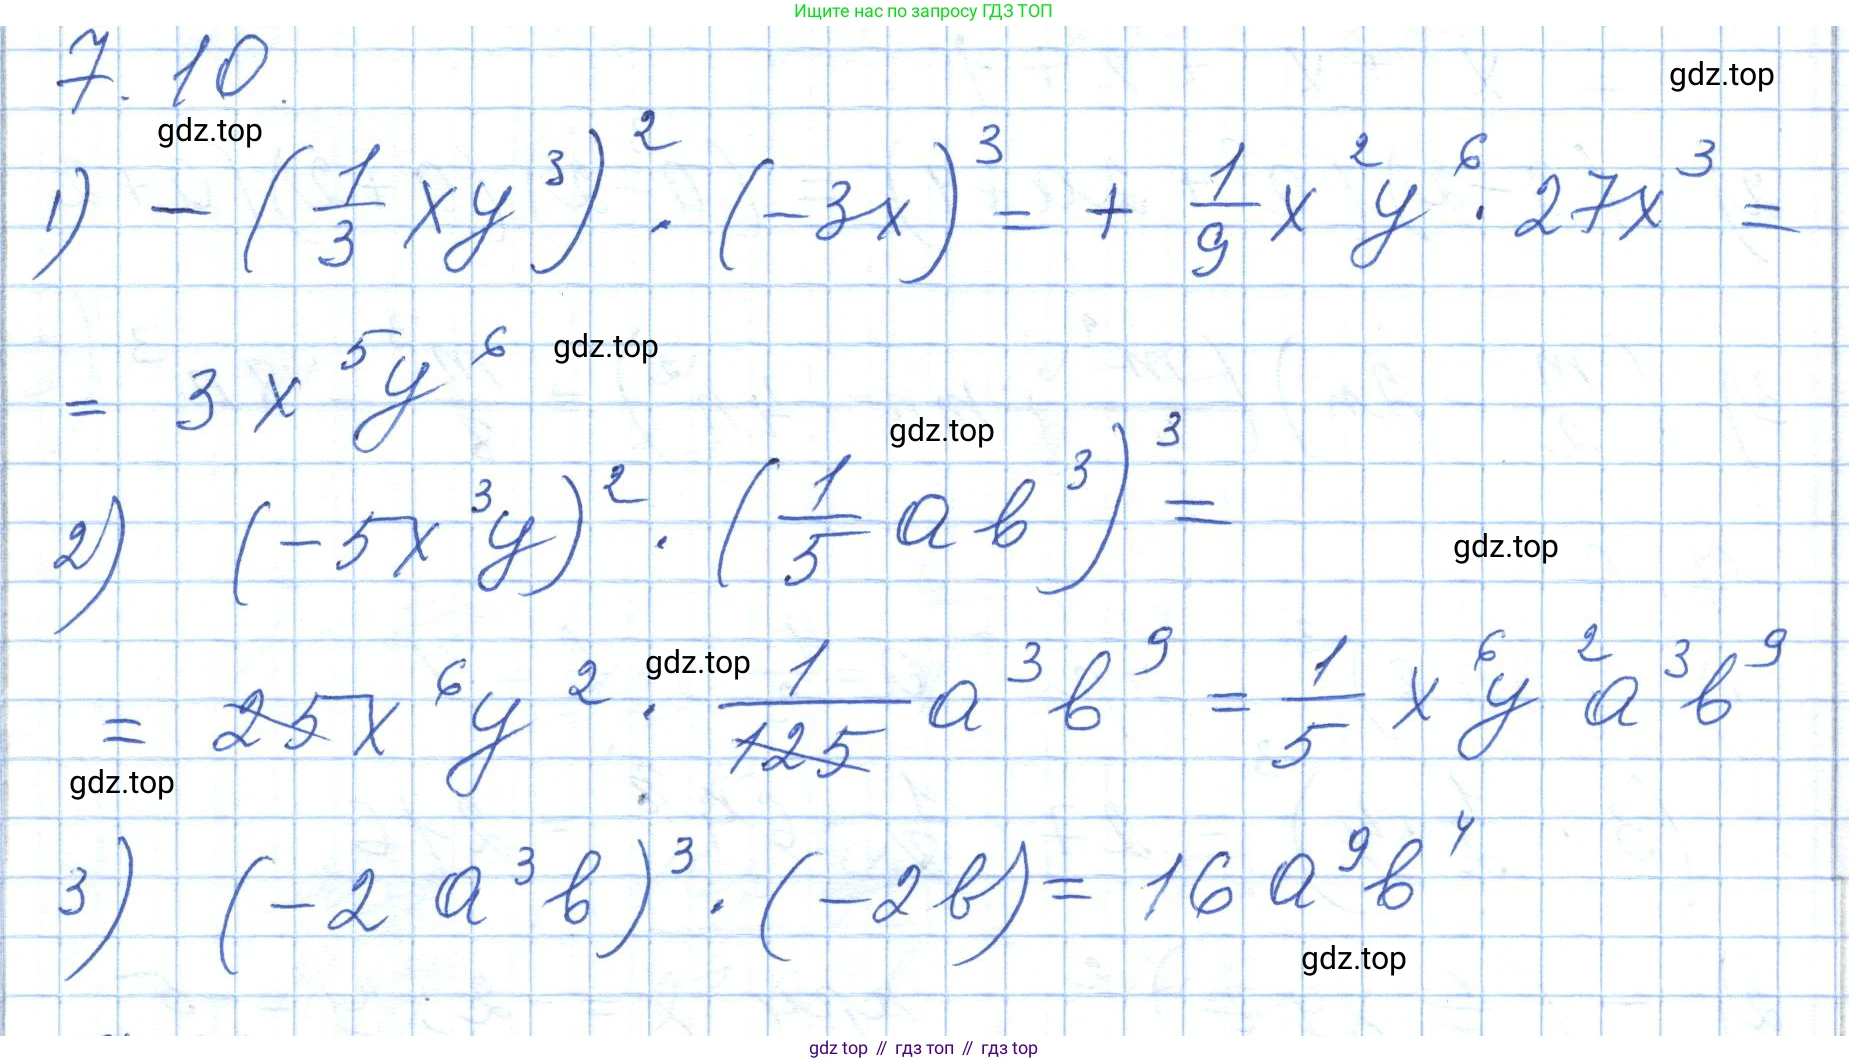 Ищите нас по запросу ГДЗ ТОП
7.10.
gdz.top
gdz.top
1) -(1/3 xy³)² · (-3x)³ = + 1/9 x²y⁶ · 27x³ =
= 3x⁵y⁶
gdz.top
gdz.top
2) (-5x³y)² · (1/5 ab³)³ =
gdz.top
gdz.top
= 25x⁶y² · 1/125 a³b⁹ = 1/5 x⁶y²a³b⁹
gdz.top
3) (-2a³b)³ · (-2b) = 16a⁹b⁴
gdz.top
gdz top // гдз топ // gdz top